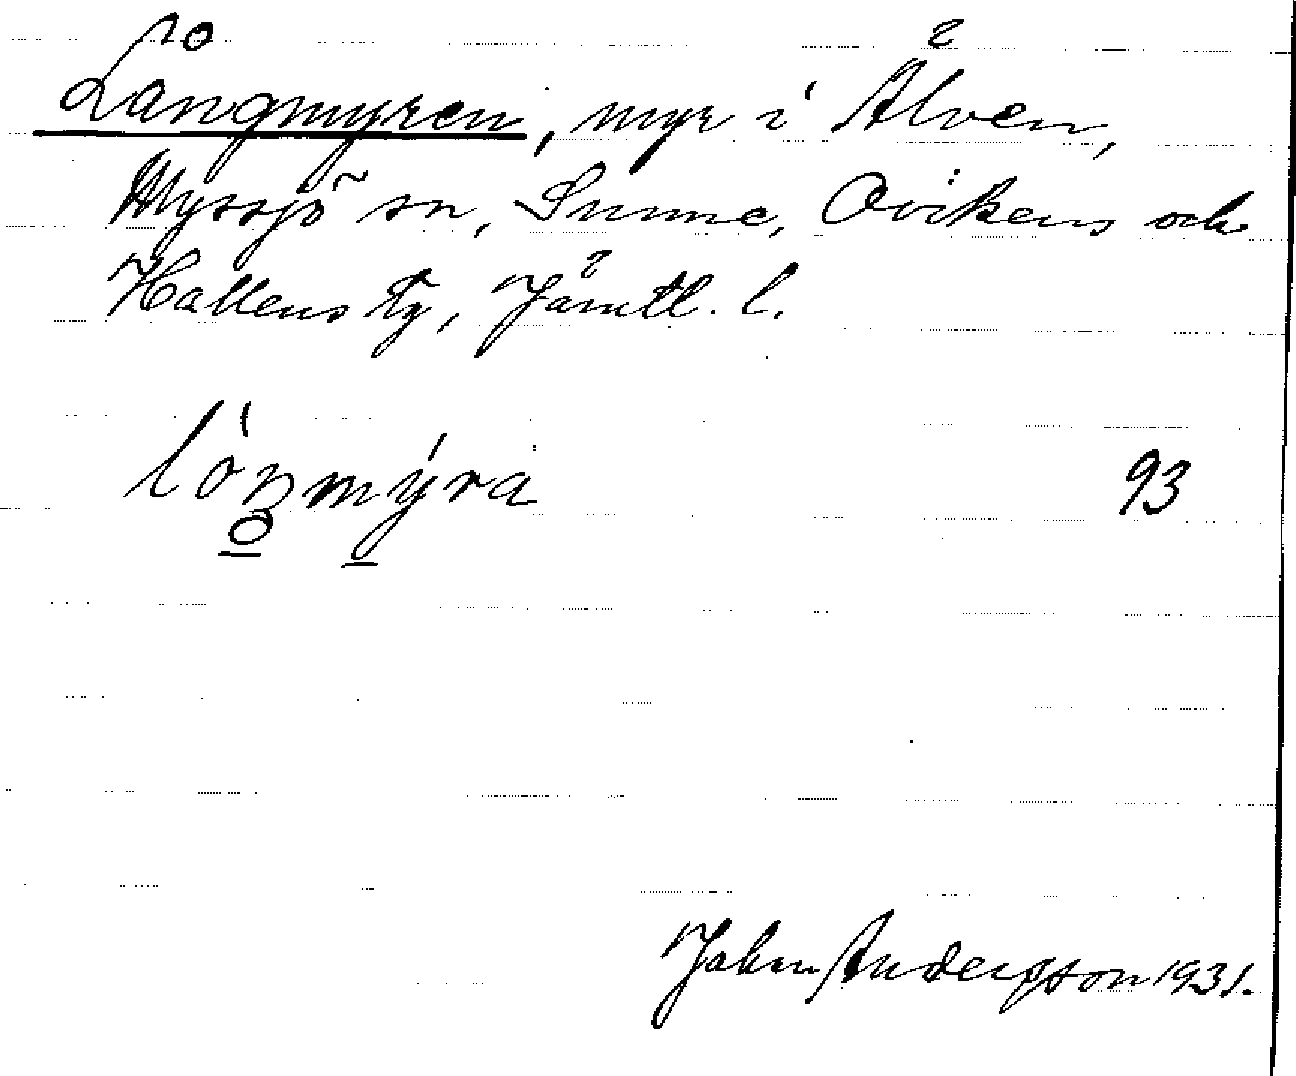 Långmyren, myr i Älven,
Myssjö sn, Sunne, Ovikens och
Hallens tg, Jämtl. l.
93
John Andersson 1931.